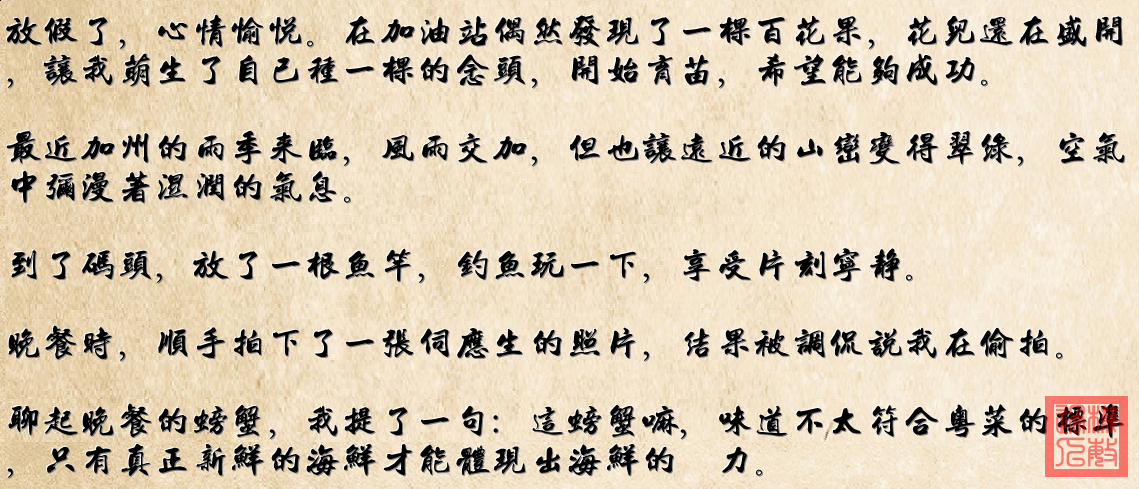 放假了，心情愉悦。在加油站偶然發現了一棵百花果，花兒還在盛開
，讓我萌生了自己種一棵的念頭，開始育苗，希望能夠成功。
最近加州的雨季来臨，風雨交加，但也讓遠近的山巒變得翠綠，空氣
中彌漫著濕潤的氣息。
到了碼頭，放了一根魚竿，釣魚玩一下，享受片刻寧静。
晚餐時，順手拍下了一張伺應生的照片，结果被調侃説我在偷拍。
聊起晚餐的螃蟹，我提了一句：這螃蟹嘛，味道不太符合粵菜的標準
，只有真正新鮮的海鮮才能體現出海鮮的　力。